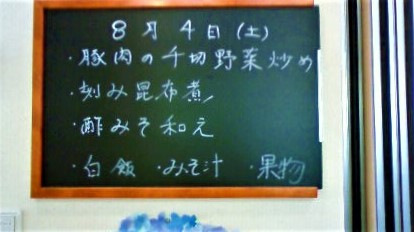 8月4日(土)
・豚肉の千切野菜炒め
・刻み昆布煮
・酢みそ和え
・白飯 ・みそ汁 ・果物